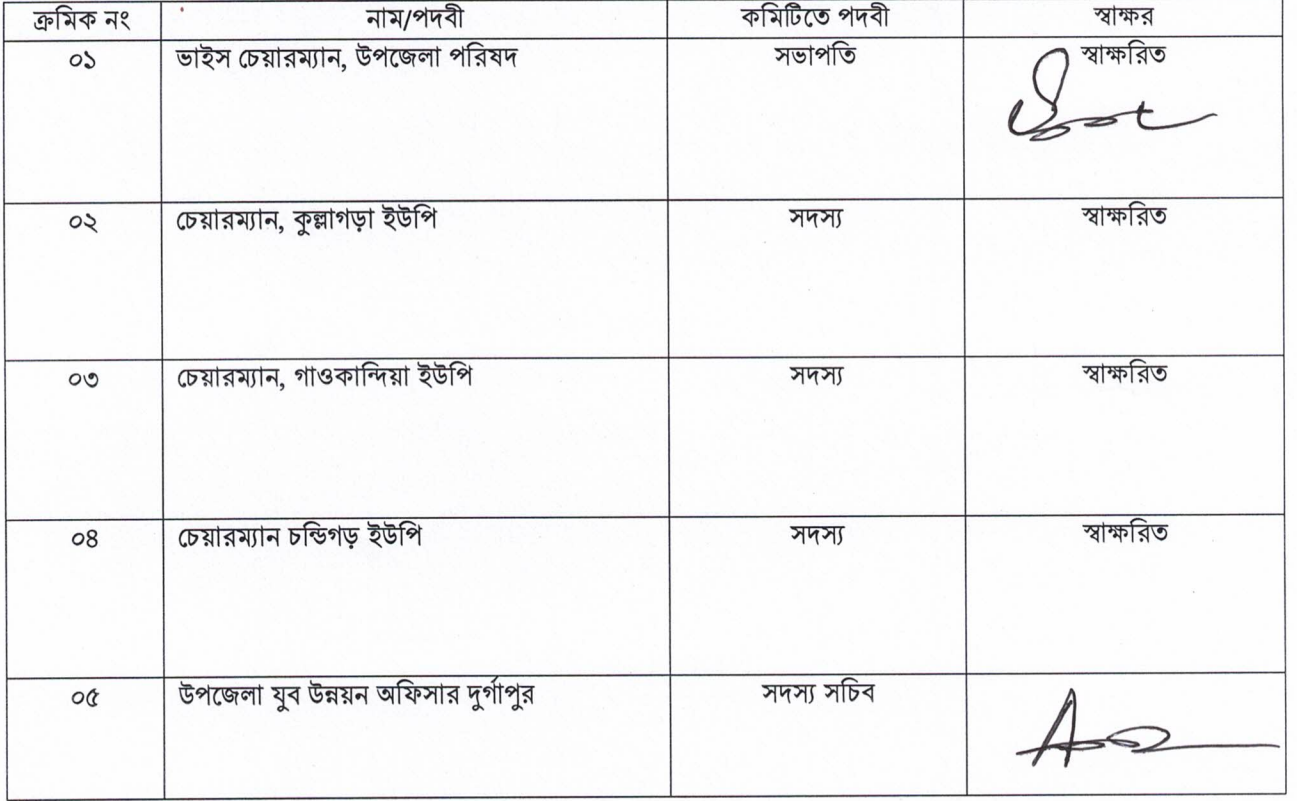 ক্রমিক নং নাম/পদবী কমিটিতে পদবী স্বাক্ষর
০১ ভাইস চেয়ারম্যান, উপজেলা পরিষদ সভাপতি স্বাক্ষরিত
০২ চেয়ারম্যান, কুল্লাগড়া ইউপি সদস্য স্বাক্ষরিত
০৩ চেয়ারম্যান, গাওকান্দিয়া ইউপি সদস্য স্বাক্ষরিত
০৪ চেয়ারম্যান চন্ডিগড় ইউপি সদস্য স্বাক্ষরিত
০৫ উপজেলা যুব উন্নয়ন অফিসার দুর্গাপুর সদস্য সচিব